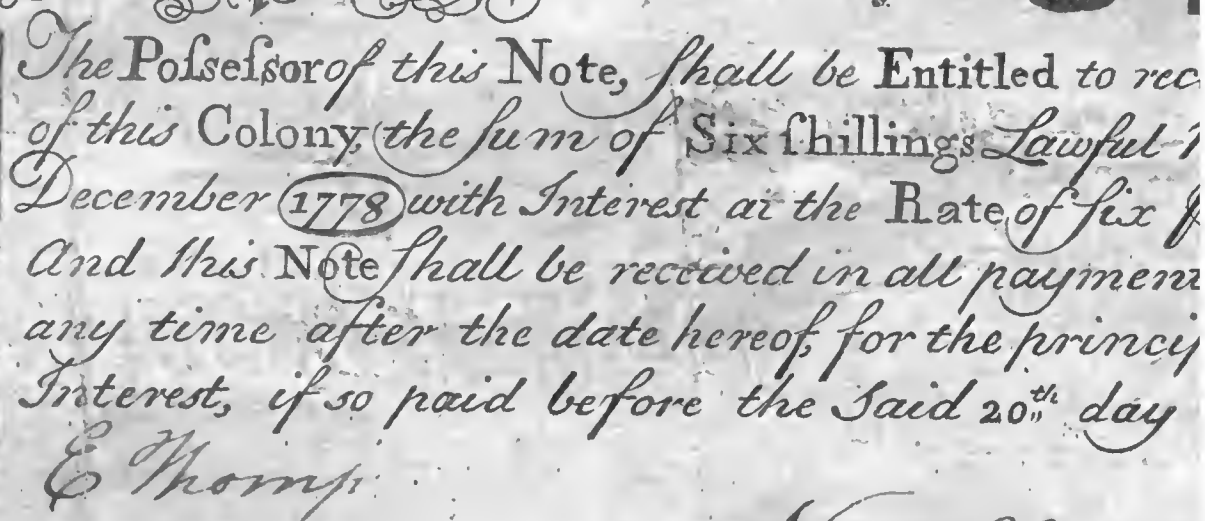 The Poſseſsor of this Note, ſhall be Entitled to rec
of this Colony, the ſum of Six ſhillings Lawful
December 1778 with Interest at the Rate of ſix
And this Note ſhall be received in all payment
any time after the date hereof, for the princip
Interest, if so paid before the Said 20th day
E Thomp